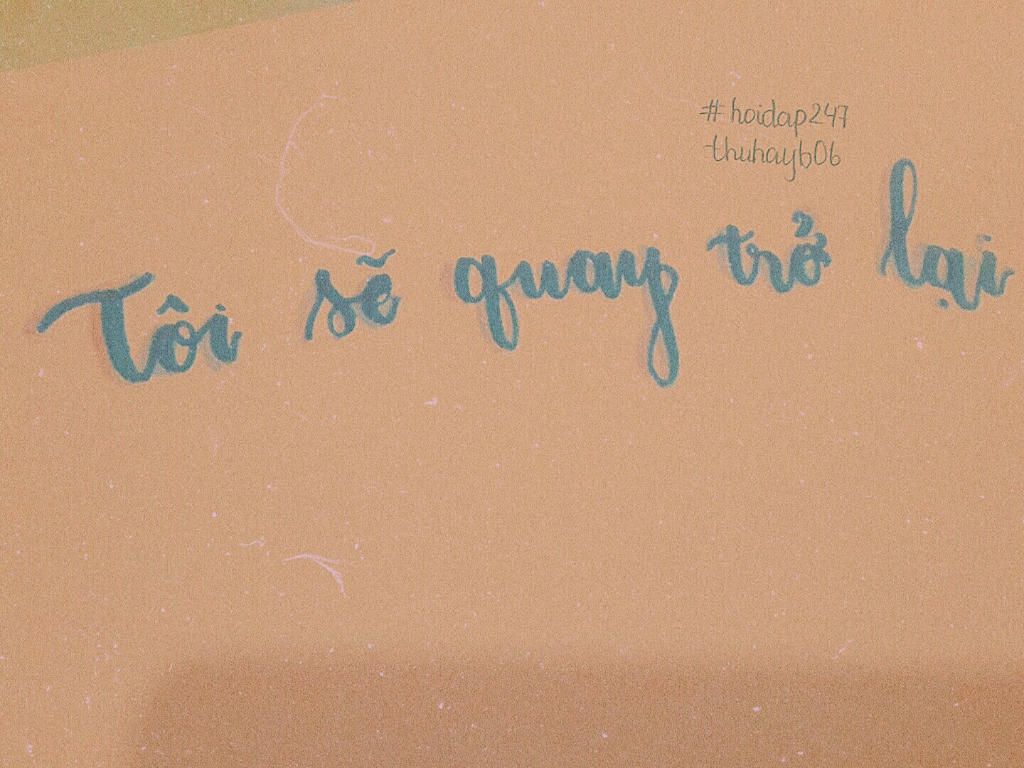 #hoidap247
thuhayb06
Tôi sẽ quay trở lại